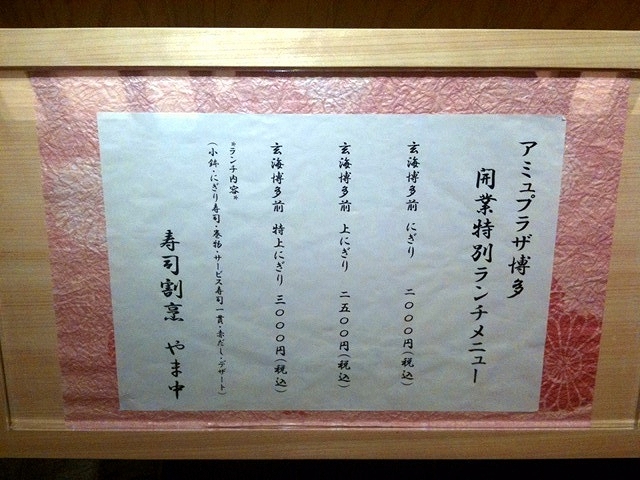 アミュプラザ博多
開業特別ランチメニュー
玄海博多前 にぎり 二〇〇〇円(税込)
玄海博多前 上にぎり 二五〇〇円(税込)
玄海博多前 特上にぎり 三〇〇〇円(税込)
*ランチ内容*
(小鉢・にぎり寿司・巻物・サービス寿司一貫・赤だし・デザート)
寿司割烹 やま中